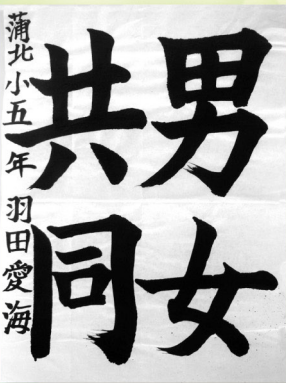 男女
共同
蒲北小五年 羽田愛海